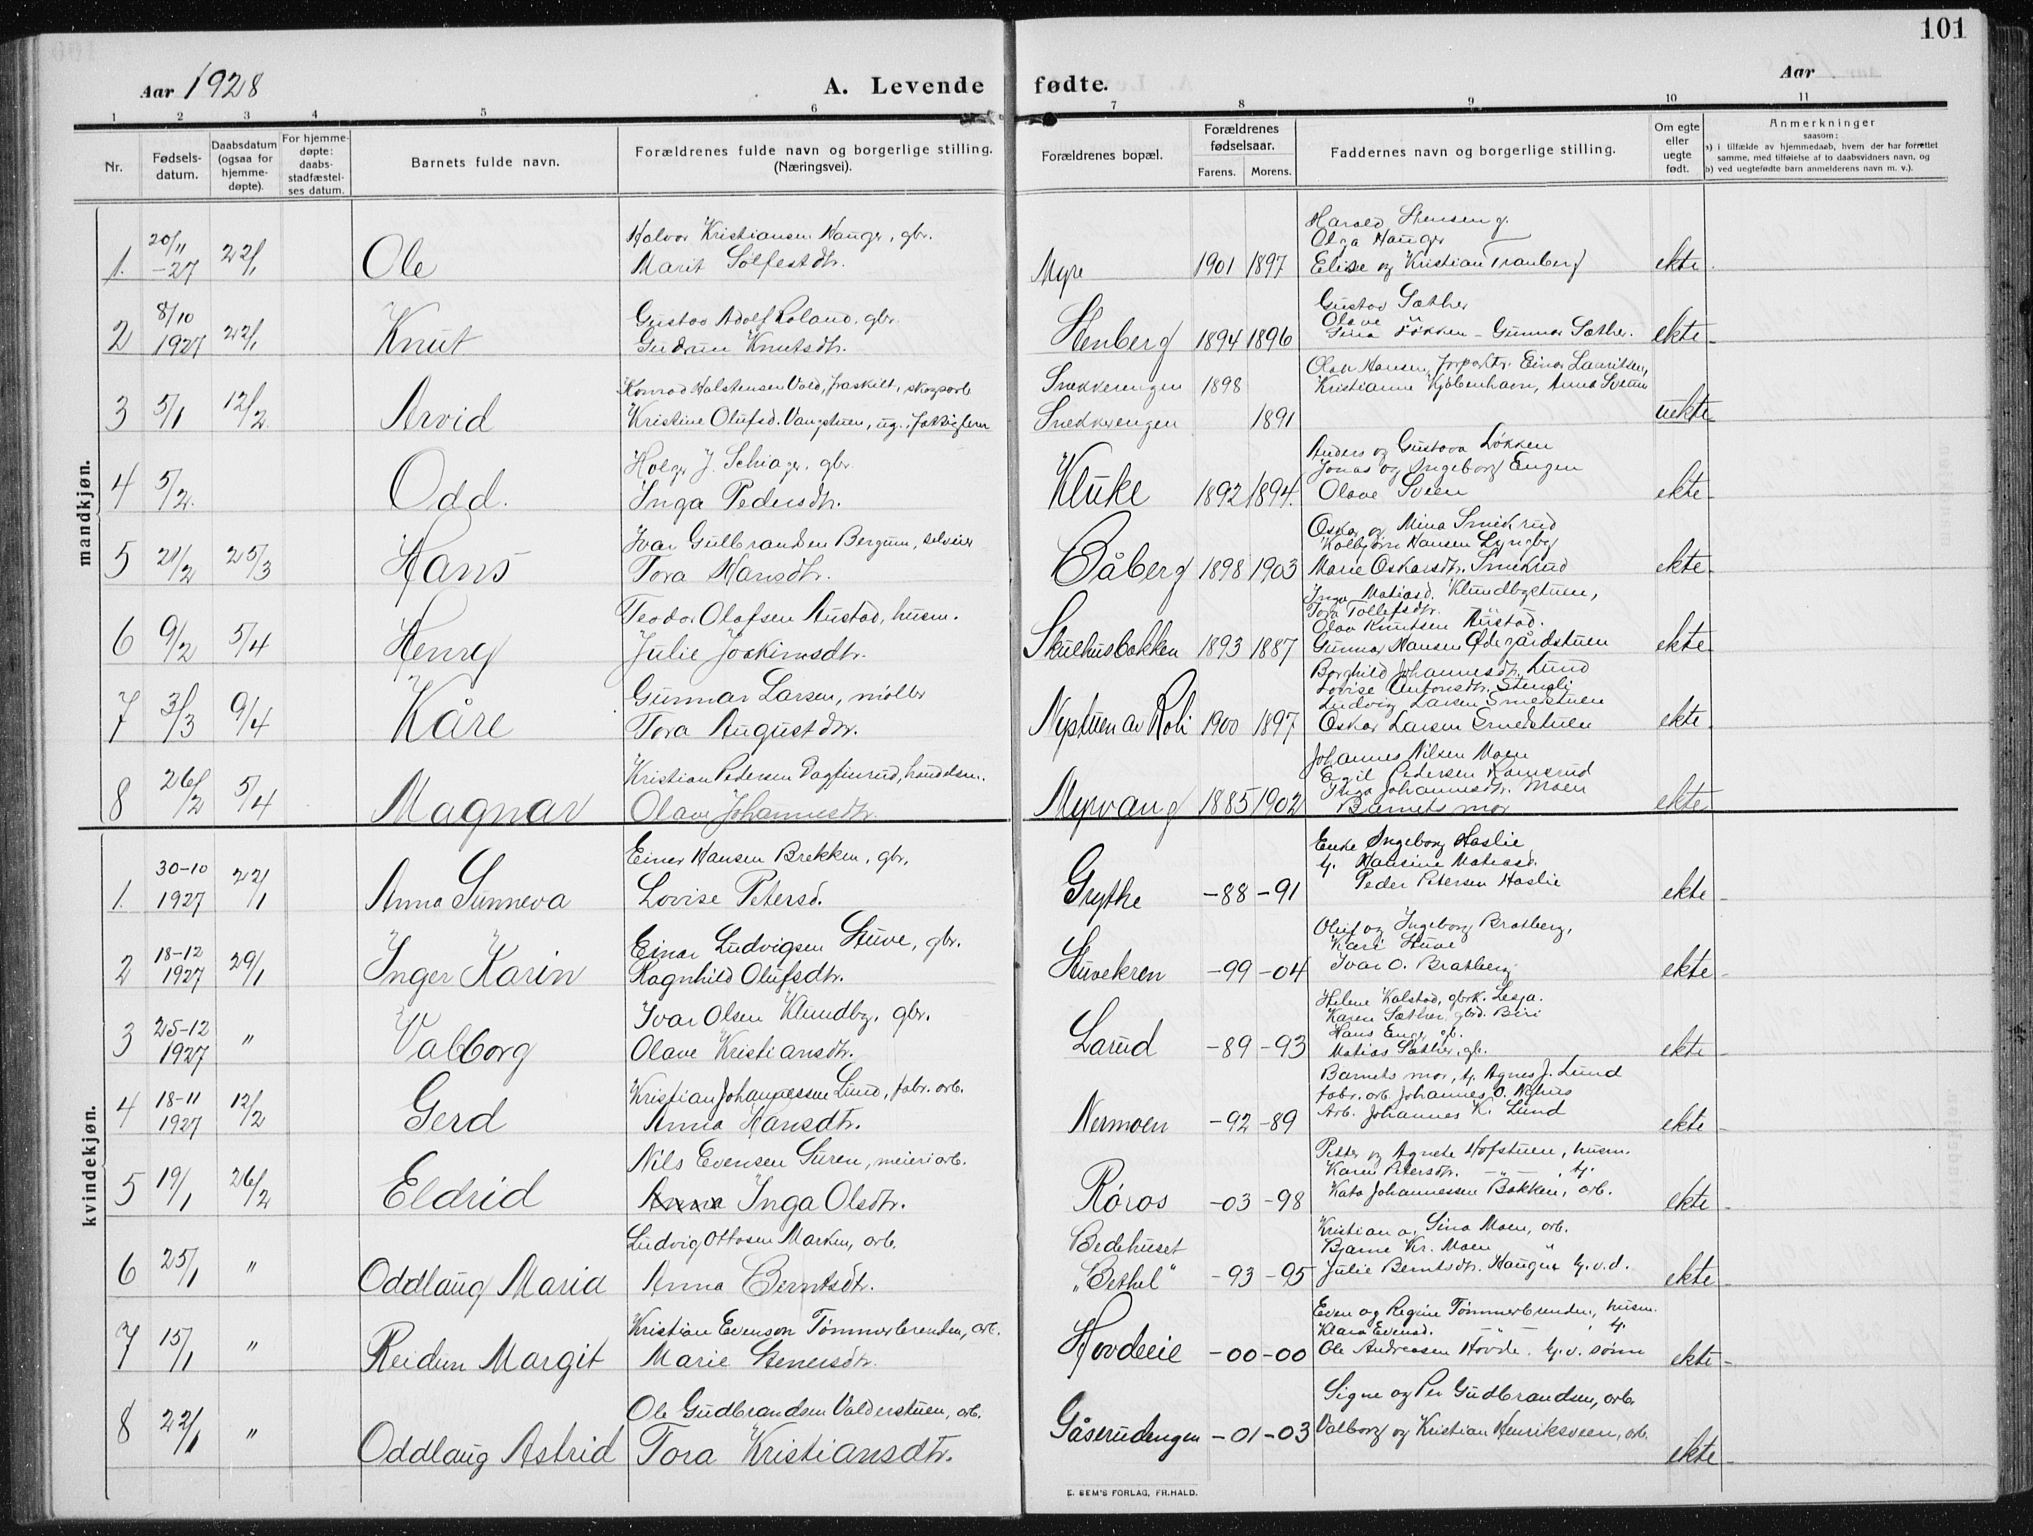 101
Aar 1928
A. Levende fødte.
Aar
1 2 3 4 5 6 7 8 9 10 11
Nr.
Fødsels-
datum.
Daabsdatum
(ogsaa for
hjemme-
døpte).
For hjemme-
døpte:
daabs-
stadfæstel-
ses datum.
Barnets fulde navn.
Forældrenes fulde navn og borgerlige stilling.
(Næringsvei).
Forældrenes bopæl.
Forældrenes
fødselsaar.
Farens. Morens.
Faddernes navn og borgerlige stilling.
Om egte
eller
uegte
født.
Anmerkninger
saasom:
a) i tilfælde av hjemmedaab, hvem der har forrettet
samme, med tilføielse af to daabsvidners navn, og
b) ved uegtefødte barn anmelderens navn m. v.).
mandkjøn.
1. 20/11 -27 22/1 Ole
Halvor Kristiansen Hauger, gbr.
Marit Solfestdtr.
Myre 1901 1897
Harald Stensen g.
Olga Hauger
Elise og Kristian Tranberg
ekte.
2 8/10 1927 22/1 Knut
Gustav Adolf Roland, gbr.
Gudrun Knutsdtr.
Stenberg 1894 1896
Gustav Sæther
Olave "
Gina Løkken - Gunnar Sæther.
ekte
3 5/1 12/2 Arvid
Konrad Halstensen Vold, fraskilt, skogsarb
Kristine Olufsd. Vangstuen, ug. fattiglem
Snekkerengen 1898
Snekkerengen 1891
Olaf Hansen, forpaktr. Einar Lauritsen,
Kristianne Kjøbenhavn, Anna Sveum
uekte
4 5/2. Odd.
Holger J. Schiager, gbr.
Inga Pedersdtr.
Kluke 1892 1894.
Anders og Gustava Løkken
Jonas og Ingeborg Engen
Olave Sveen
ekte
5 21/2 25/3 Hans
Ivar Gulbrandsen Bergum, selveier
Tora Hansdtr.
Båberg 1898 1903
Oskar og Mina Smikrud
Kolbjørn Hansen Lyngby
Marie Oskarsdtr. Smikrud
ekte
6 9/2 5/4 Henry
Teodor Olafsen Austad, husm.
Julie Joakimsdtr.
Skulhusbakken 1893 1887
Inga Matiasd. Klundbytuen,
Tora Tollefsdtr.
Olav Knutsen Austad.
Gunnar Hansen Ødegårdstuen
ekte
7 3/3 9/4 Kåre
Gunnar Larsen, møller
Tora Augustdtr.
Nystuen av Roli 1900 1897
Borghild Johannesdtr. Lund
Lovise Antonsdtr. Stensli
Ludvig Larsen Smedstuen
Oskar Larsen Smedstuen
ekte
8 26/2 5/4 Magnar
Kristian Pedersen Dagfinrud, handelsm.
Olave Johannesdtr.
Myrvang 1885 1902
Johannes Nilsen Moen
Emil Pedersen Ramsrud
Inga Johannesdtr. Moen
Barnets mor
ekte
kvindekjøn.
1. 30-10 1927 22/1 Anna Sunneva
Einar Hansen Brekken, gbr.
Lovise Petersd.
Grythe -88 -91
Enke Ingeborg Haslie
Hansine Matiasd.
Peder Petersen Haslie
ekte
2 18-12 1927 29/1 Inger Karin
Einar Ludvigsen Stuve, gbr.
Ragnhild Olufsdtr.
Stuvekren -99 -04
Oluf og Ingeborg Bratberg,
Kari Stuve
Ivar O. Bratberg
ekte
3 25-12 1927 " Valborg
Ivar Olsen Klundby, gbr.
Olave Kristiansdtr.
Larud -89 -93
Helene Kalstad, gbrk. Lesja.
Karen Sæther, gbrd. Biri
Hans Enge gb.
Matias Sæther, gb.
ekte
4 18-11 1927 12/2 Gerd
Kristian Johannessen Lund, fabr. arb.
Anna Hansdtr.
Nermoen -92 -89
Barnets mor, tj. Agnes J. Lund
fabr. arb. Johannes O. Nyhus
Arb. Johannes K. Lund
ekte
5 19/1 26/2 Eldrid
Nils Evensen Suren, meieriarb.
Anna Inga Olsdtr.
Røros -03 -98
Petter og Agnete Hofstuen, husm.
Karen Petersdtr. -"- tj.
Kato Johannessen Bakken, arb.
ekte
6 25/1 " Oddlaug Maria
Ludvig Ottosen Marken, arb.
Anna Berntsdtr.
Bedehuset
„Bethel" -93 -95
Kristian og Sina Moen, arb.
Bjarne Kr. Moen "
Julie Berntsdtr. Haugen tj.v.d.
ekte
7 15/1 " Reidun Margit
Kristian Evenson Tømmerbrenden, arb.
Marie Stenersdtr.
Hovdeeie -00 -00
Even og Regine Tømmerbrenden, husm.
Klara Evensd. -"- tj.
Ole Andreasen Hovde. tj.v. sønn
ekte
8 22/1 " Oddlaug Astrid
Ole Gudbrandsen Valderstuen, arb.
Tora Kristiansdtr.
Gåserudengen -01 -03
Signe og Per Gudbrandsen, arb.
Valborg og Kristian Henriksveen, arb.
ekte
E. SEM'S FORLAG, FR.HALD.